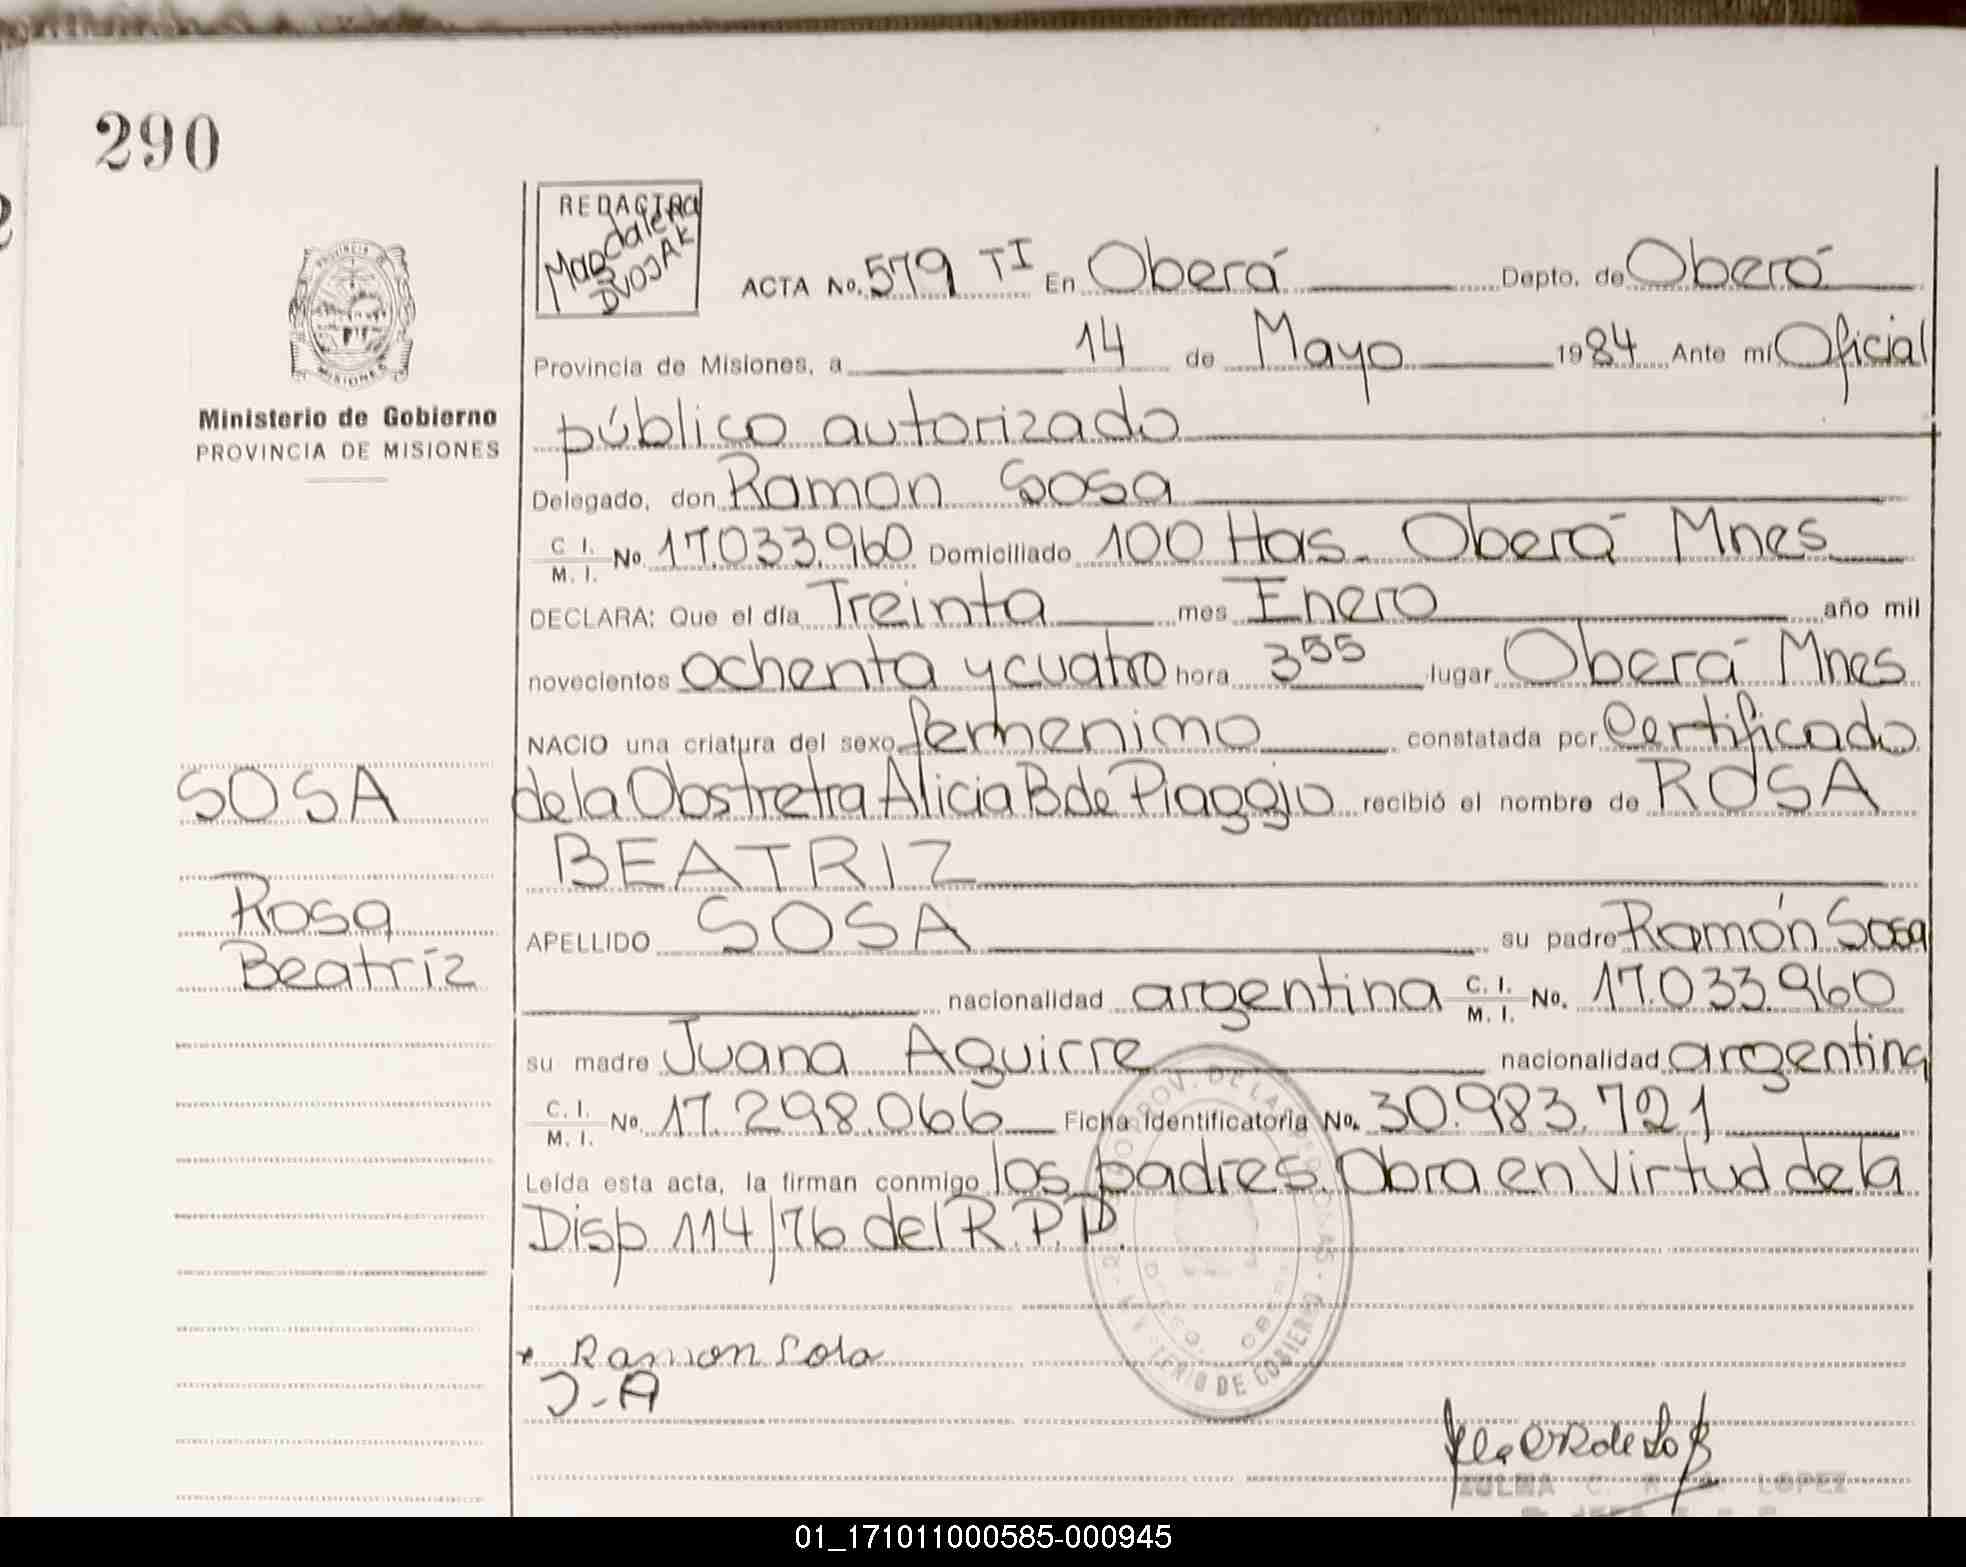 290
REDACTRA
Magdalena
DVOJAK
ACTA No. 579 TI En Oberá Depto. de Oberá
Provincia de Misiones, a 14 de Mayo 1984 Ante mí Oficial
Ministerio de Gobierno
PROVINCIA DE MISIONES
público autorizado
Delegado, don Ramon Sosa
C I. M. I. No. 17.033.960 Domiciliado 100 Has. Oberá Mnes
DECLARA: Que el día Treinta mes Enero año mil
novecientos ochenta y cuatro hora 3 55 lugar Oberá Mnes
NACIO una criatura del sexo femenino constatada por Certificado
de la Obstretra Alicia B de Piaggio recibió el nombre de ROSA
BEATRIZ
SOSA
Rosa
Beatriz
APELLIDO SOSA su padre Ramón Sosa
nacionalidad argentina C. I. M. I. No. 17.033.960
su madre Juana Aguirre nacionalidad argentina
C. I. M. I. No. 17.298.066 Ficha identificatoria No. 30.983.721
Leída esta acta, la firman conmigo los padres. Obra en Virtud de la
Disp 114/76 del R.P.P.
Ramon Sosa
J-A
DE GOBIERNO
ZULMA C. LOPEZ
01_171011000585-000945